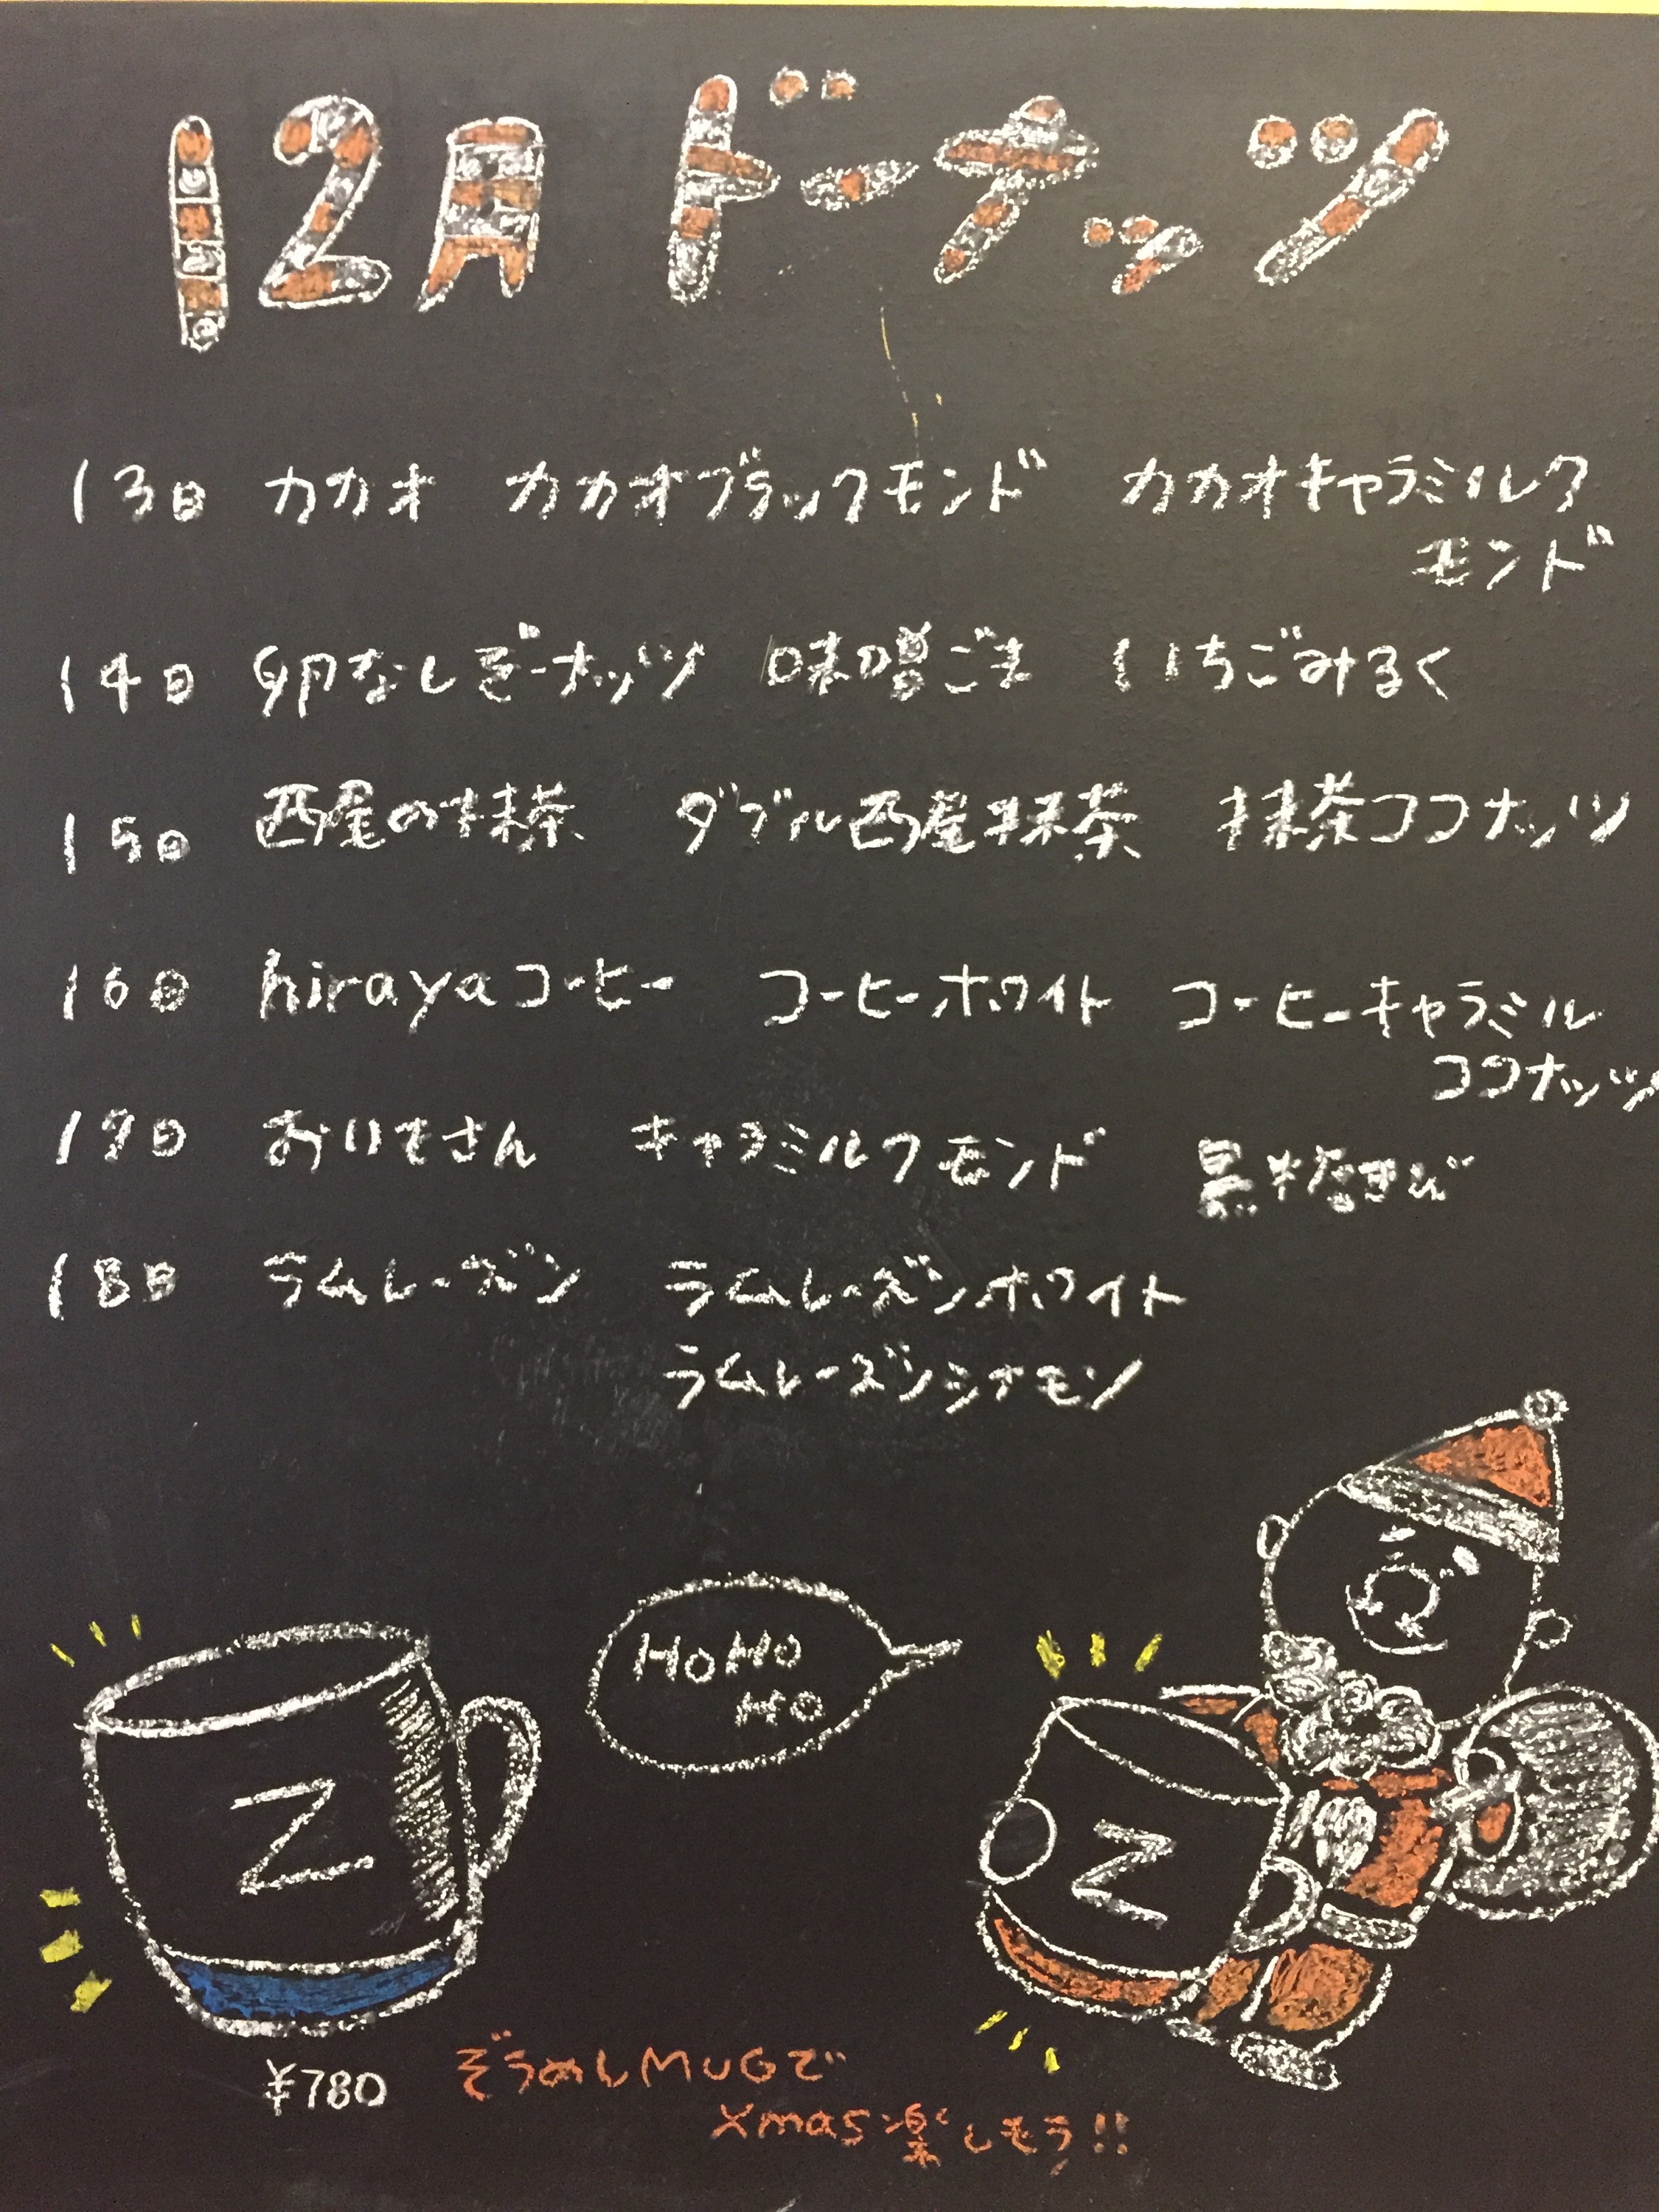 12月 ドーナッツ
13日 カカオ カカオブラックモンド カカオキャラミルク
モンド
14日 卵なしぞーナッツ 味噌ごま いちごみるく
15日 西尾の抹茶 ダブル西尾抹茶 抹茶ココナッツ
16日 hirayaコーヒー コーヒーホワイト コーヒーキャラミル
ココナッツ
17日 おいもさん キャラミルクモンド 黒糖きび
18日 ラムレーズン ラムレーズンホワイト
ラムレーズンシナモン
HoHo
Ho
Z
Z
¥780
ぞうめしMUGで
Xmas楽しもう!!